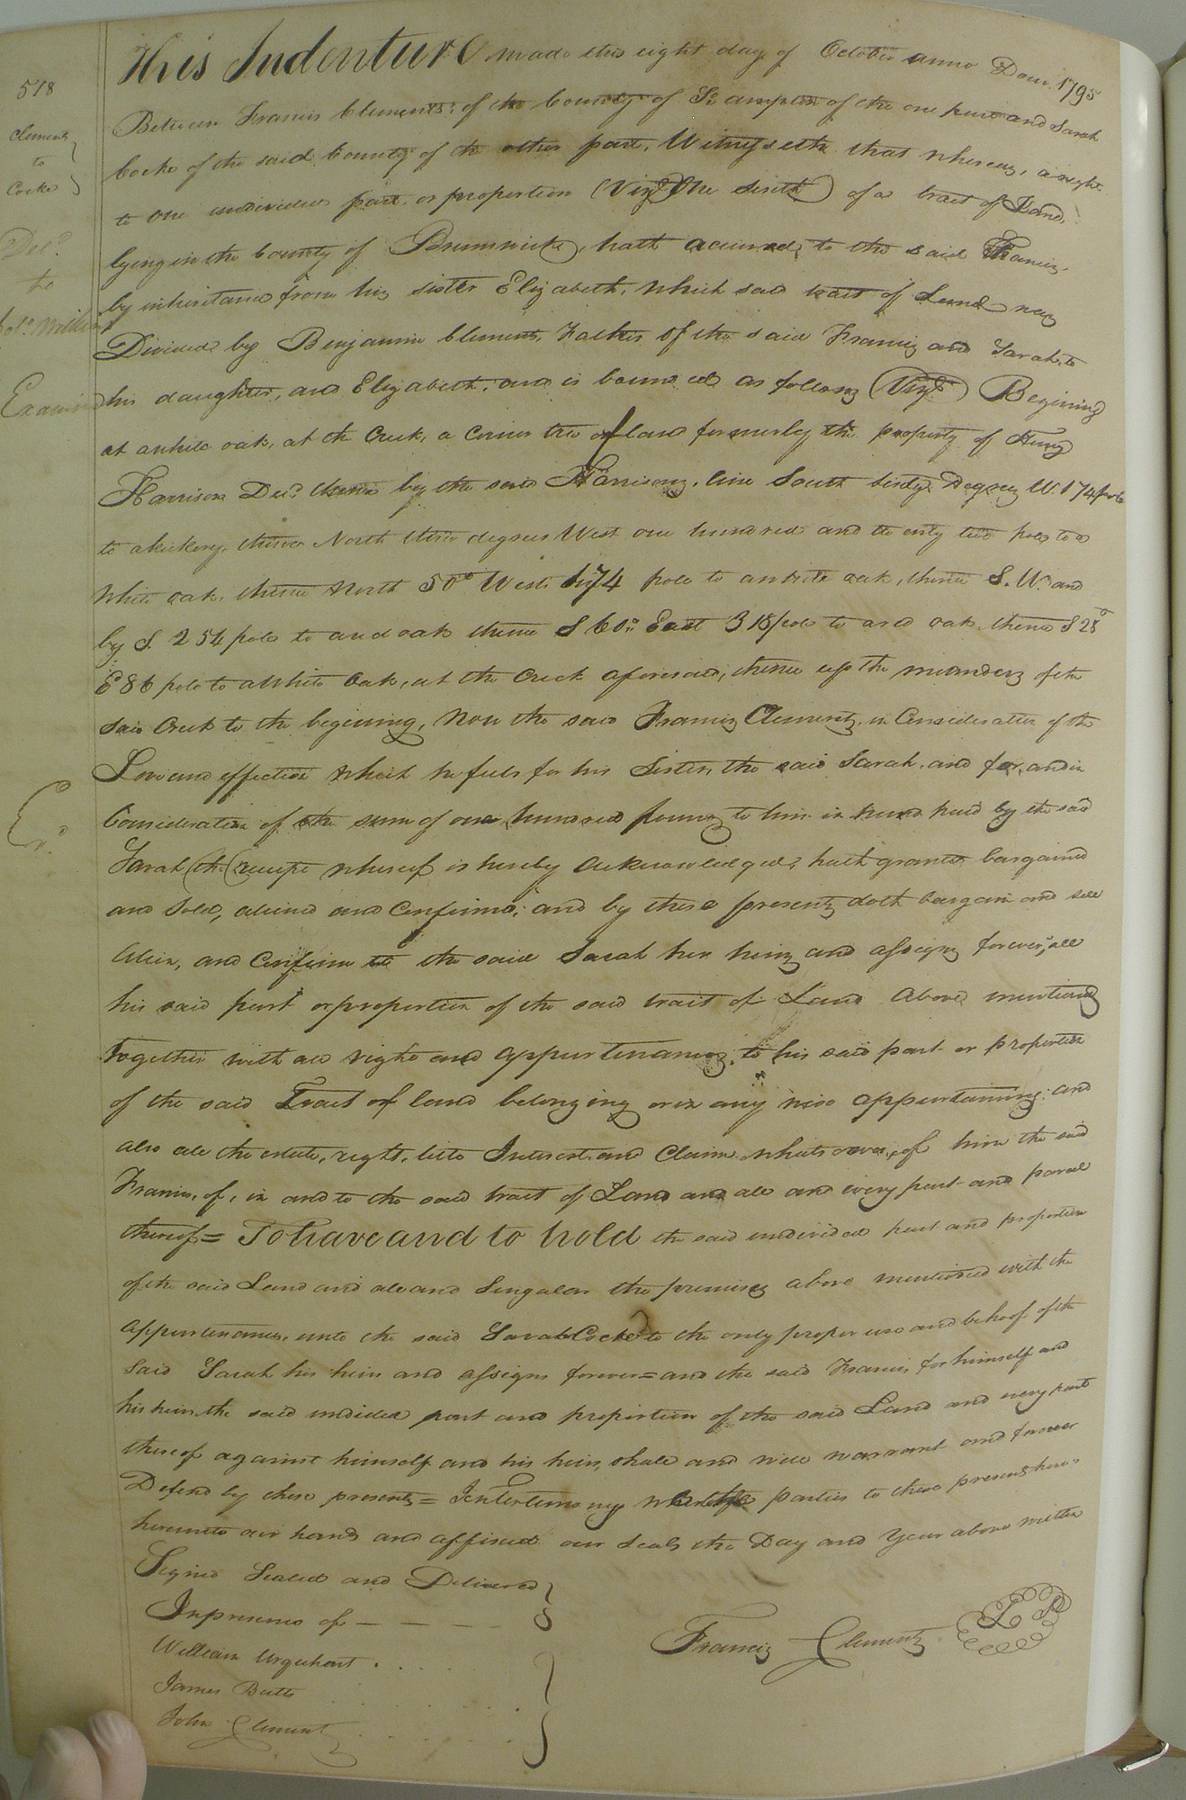 This Indenture made this eight day of October anno Dom. 1795
578
Clements
to
Cocke
Between Francis Clements of the County of So. ampton of the one part and Sarah
Cocke of the said County of the other part, Witnesseth that whereas, a right
to one undivided part or proportion (Vizt. One sixth) of a tract of Land
Del.d
to
lying in the County of Brunswick, hath accrued, to the said Francis,
by inheritance from his sister Elizabeth, which said tract of Land was
Divided by Benjamin Clements, Father of the said Francis and Sarah, to
Examined
his daughters, and Elizabeth, and is bounded as follows (Vizt.) Begining
at a white oak, at the Creek, a Corner tree of land formerly the property of Henry
Harrison Decd. thence by the said Harrisons, line South sixty Degrees W. 174 pole
to a hickory, thence North three degrees West one hundred and twenty two pole to a
White oak, thence North 50° West 174 pole to a white oak, thence S. W. and
by S. 254 pole to a red oak thence S 60° East 318 pole to a red oak thence S 25°
E 86 pole to a White Oak, at the Creek aforesaid, thence up the meanders of the
said Creek to the begining, Now the said Francis Clements, in Consideration of the
Love and affection which he feels for his Sister, the said Sarah, and for, and in
Consideration of the sum of one hundred pounds to him in hand paid by the said
Sarah (the receipt whereof is hereby acknowledged, hath granted bargained
and Sold, aliened and Confirmed, and by these presents doth bargain and sell
Alien, and Confirm to the said Sarah her heirs and assigns forever, all
his said part or proportion of the said tract of Land above mentioned
together with all rights and appurtenances, to his said part or proportion
of the said Tract of land belonging or in any wise appertaining: and
also all the estate, right, title Interest and Claim whatsoever, of him the said
Francis, of, in and to the said tract of Land and all and every part and parcel
thereof = To have and to hold the said undivided part and proportion
of the said Land and all and Singular the premises above mentioned with the
appurtenances, unto the said Sarah Cocke to the only proper use and behoof of the
said Sarah his heirs and assigns forever = and the said Francis for himself and
his heirs, the said undided part and proportion of the said Land and every part
thereof against himself and his heirs, shall and will warrant and forever
Defend by these presents = In Testimony whereof the parties to these presents have
hereunto our hands and affixed our Seals the Day and Year above written
Signed Sealed and Delivered
In presence of
William Urquhart
James Butts
John Clements
Francis Clements L S